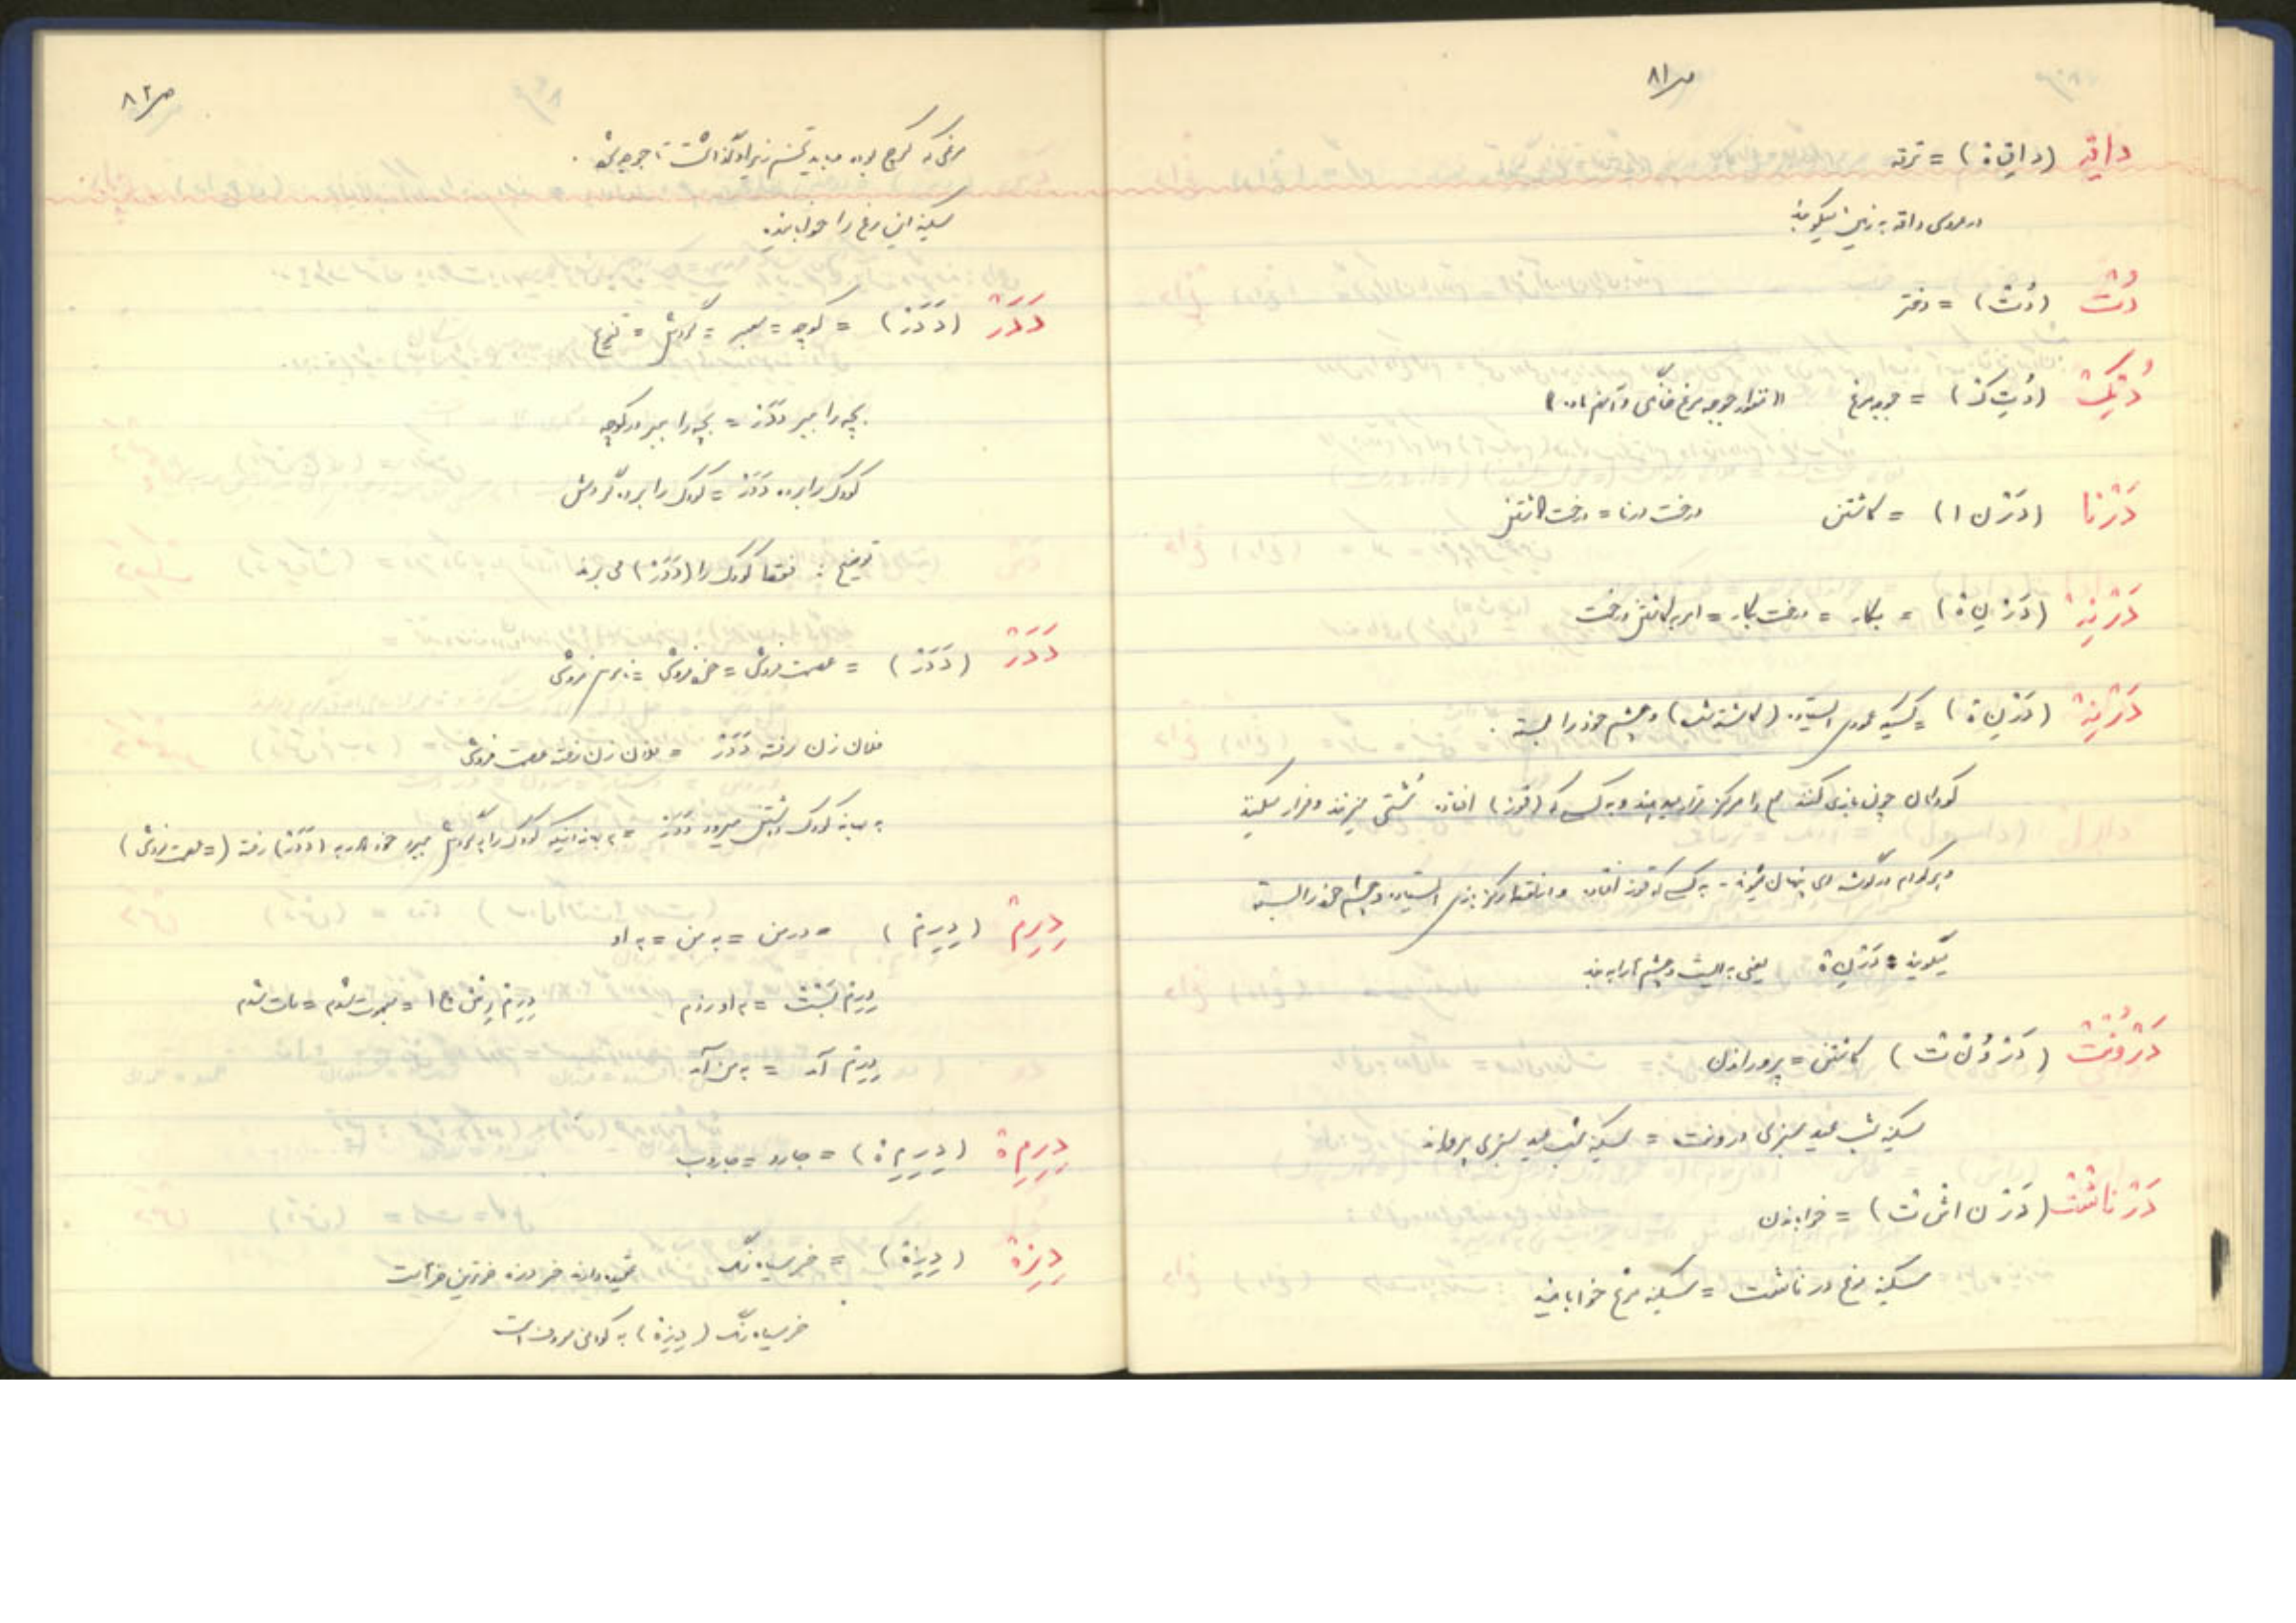 ص ۸۱
داته (دات ة) = ترکه
در عروسی داته به زمین میکوبند
دُت (دُت) = دختر
دُتِک (دُتِ ک) = جوجه مرغ
دَرْنا (دَرْ ن ا) = کاشتن درخت درنا = درخت کاشتن
دَرْنِه (دَرْ نِ ة) = بکار = درخت بکار = امر به کاشتن درخت
دَرْنِه (دَرْ نِ ة) = کسیکه عمودی ایستاده (کاشته شده) و چشم خود را بسته.
کودکان چون بازی کنند را مرکز قرار میدهند و به کسی که (قوز) افتاده مشتی میزند و فرار میکنند
و هر کدام در گوشه ای پنهان میشوند - به کسی که قوز افتاده و در نقطه مرکز بازی ایستاده و چشم خود را بسته
میگویند = دَرْنِ ة یعنی بایست و چشمها را ببند
دَرْوُنت (دَرْ وُ ن ت) کاشتن = پروراندن
سکینه شب عید سبزی درونت = سکینه شب عید سبزی پروراند
دَرْناشت (دَرْ ن اش ت) = خواباندن
سکینه مرغ درناشت = سکینه مرغ خواباند
ص ۸۲
مرغی که کرچ بوده باید تخم زیر او گذاشت تا جوجه شود.
سکینه این مرغ را خوابانید
دَدَر (دَدَر) = کوچه = معبر = گردش = تفریح
بچه را ببر دَدَر = بچه را ببر در کوچه
کودک را برده دَدَر = کودک را برده گردش
توضیح: فقط کودک را (دَدَر) می برند
دَدَر (دَدَر) = عصمت فروشی = خود فروشی =
فلان زن رفته دَدَر = فلان زن رفته عصمت فروشی
به بهانه کودک میرود دَدَر = به بهانه اینکه کودک را به گردش میبرد خود به (دَدَر) رفته (= عصمت فروشی)
دِرِم (دِرِم) = در من = به من = به او
= به او زدم = مات شدم
دِرِم آمد = به من آمد
دِرِمِة (دِرِمِ ة) = جارو = جاروب
دِیزَة (دِیزَة) = خر سیاه رنگ
خر سیاه رنگ (دیزة) به کودنی معروف است